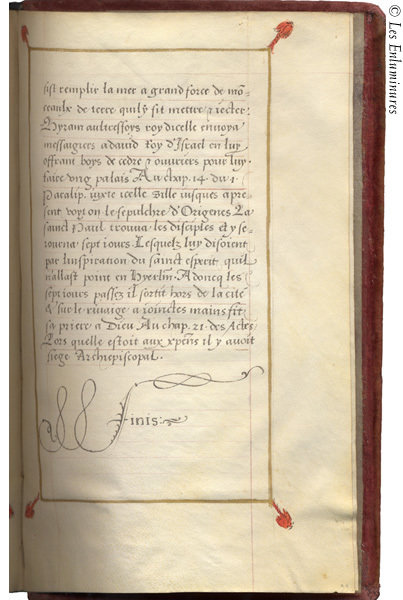 fist remplir la mer a grand force de mō-
ceaulx de terre quil y fit mettre & iecter.
Hyram aultresfoys roy dicelle enuoya
messaigiers a dauid Roy d'Israel en luy
offrant boys de cedre & ouuriers pour luy
faire vng palais Au chap. 14. du 1.
Paralip. iuxte icelle ville iusques a pre-
sent voyt on le sepulchre d'Origenes La
sainct Paul trouua les disciples et y se-
iourna sept iours. Lesquelz luy disoient
par linspiration du sainct esperit quil
n'allast point en Hyerlm̄. Adoncq les
sept iours passez il sortit hors de la cité
& sur le riuaige a ioinctes mains fit
sa priere a Dieu Au chap. 21. des Actes
Lors quelle estoit aux xp̄ens il y auoit
siege Archiepiscopal.
Finis:
© Les Enluminures